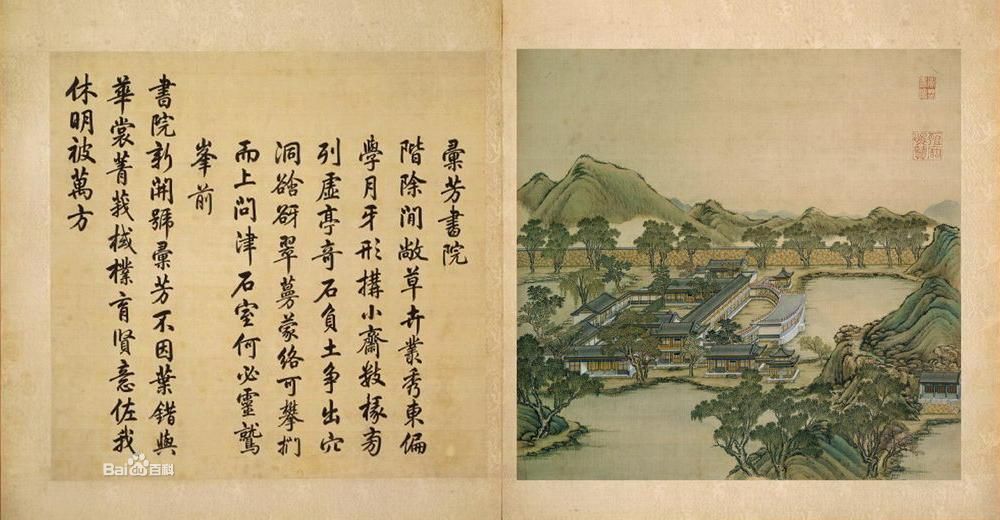 彙芳書院
階除閒敞草卉叢秀東偏
學月牙形搆小齋數椽旁
列虛亭奇石負土爭出穴
洞谽谺翠蔓蒙絡可攀捫
而上問津石室何必靈鷲
峯前
書院新開號彙芳不因葉錯與
華裳菁莪棫樸育賢意佐我
休明被萬方
Baidu百科